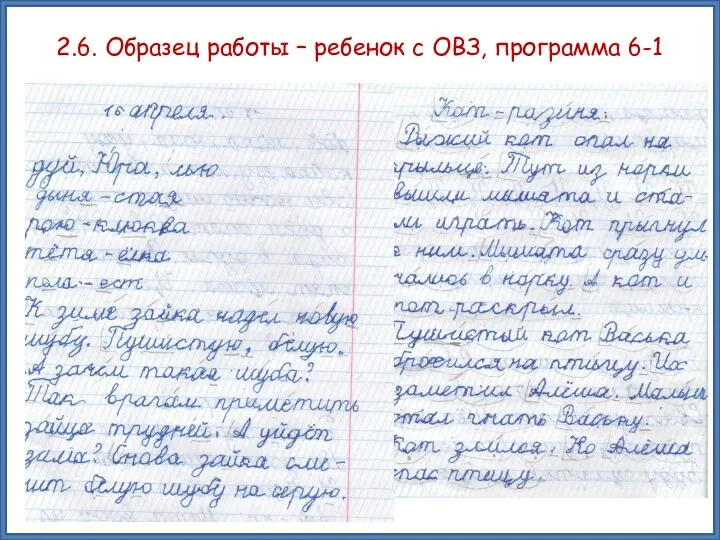 2.6. Образец работы – ребенок с ОВЗ, программа 6-1
16 апреля.
дуй, Юра, лью
дыня - стая
рою - клюква
тётя - ёлка
пела - ест
К зиме зайка надел новую
шубу. Пушистую, белую.
А зачем такая шуба?
Так врагам приметить
зайца трудней. А уйдёт
зама? Снова зайка сме-
нит белую шубу на серую.
Кот - разиня.
Рыжий кот спал на
крыльце. Тут из норки
вышли мышата и ста-
ли играть. Кот прыгнул
к ним. Мышата сразу
в норку. А кот и
рот раскрыл.
Пушистый кот Васька
бросился на птицу. Их
заметил Алёша. Малыш
стал гнать Ваську.
Кот злился. Но Алёша
спас птицу.